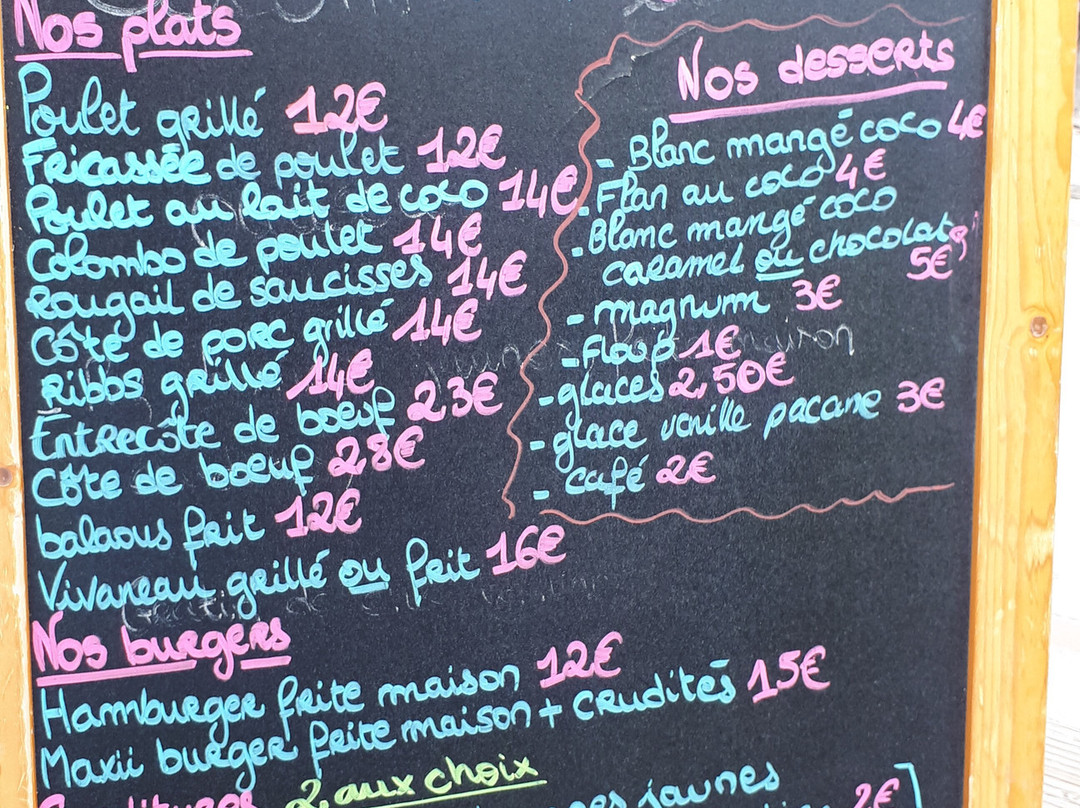 Nos plats
Poulet grillé 12€
Fricassée de poulet 12€
Poulet au lait de coco 14€
Colombo de poulet 14€
Rougail de saucisses 14€
Côte de porc grillé 14€
Ribbs grillé 14€
Entrecôte de boeuf 23€
Côte de boeuf 28€
balaous frit 12€
Vivaneau grillé ou frit 16€
Nos desserts
- Blanc mangé coco 4€
- Flan au coco 4€
- Blanc mangé coco
caramel ou chocolat
5€
- magnum 3€
- Floup 1€
- glaces 2,50€
- glace venille pacane 3€
- café 2€
Nos burgers
Hamburger frite maison 12€
Maxii burger frite maison + crudités 15€
2 aux choix
jaunes
2€